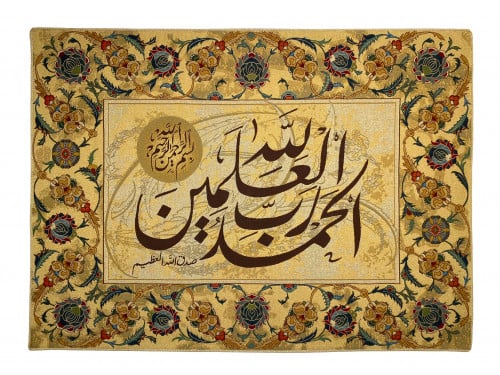 بسم الله الرحمن الرحيم
الحمد لله رب العلمين
صدق الله العظيم